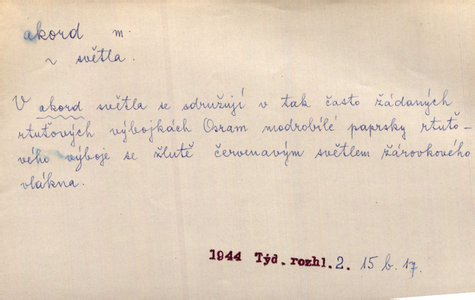 akord m.
~ světla.
V akord světla se sdružují v tak často žádaných
rtuťových výbojkách Osram modrobílé paprsky rtuťo-
vého výboje se žlutě červenavým světlem žárovkového
vlákna.
1944 Týd. rozhl. 2. 15 b. 17.